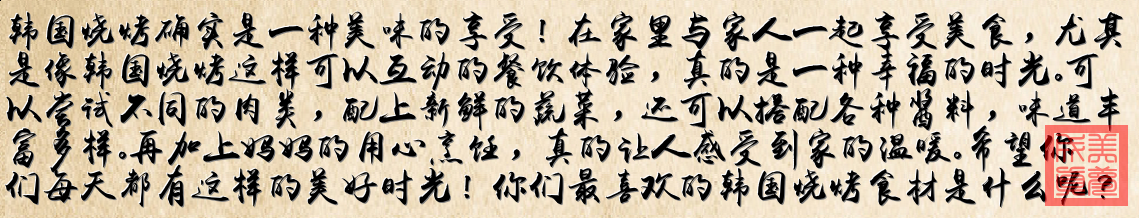 韩国烧烤确实是一种美味的享受！在家里与家人一起享受美食，尤其
是像韩国烧烤这样可以互动的餐饮体验，真的是一种幸福的时光。可
以尝试不同的肉类，配上新鲜的蔬菜，还可以搭配各种酱料，味道丰
富多样。再加上妈妈的用心烹饪，真的让人感受到家的温暖。希望你
们每天都有这样的美好时光！你们最喜欢的韩国烧烤食材是什么呢？